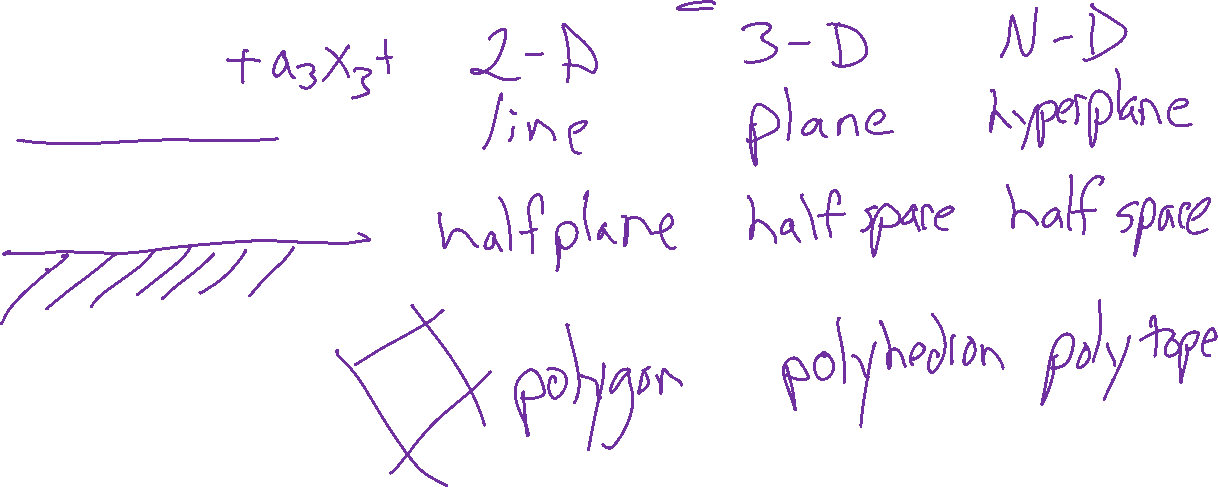 + a₃x₃ + 2-D 3-D N-D
line plane hyperplane
halfplane half space half space
polygon polyhedron polytope